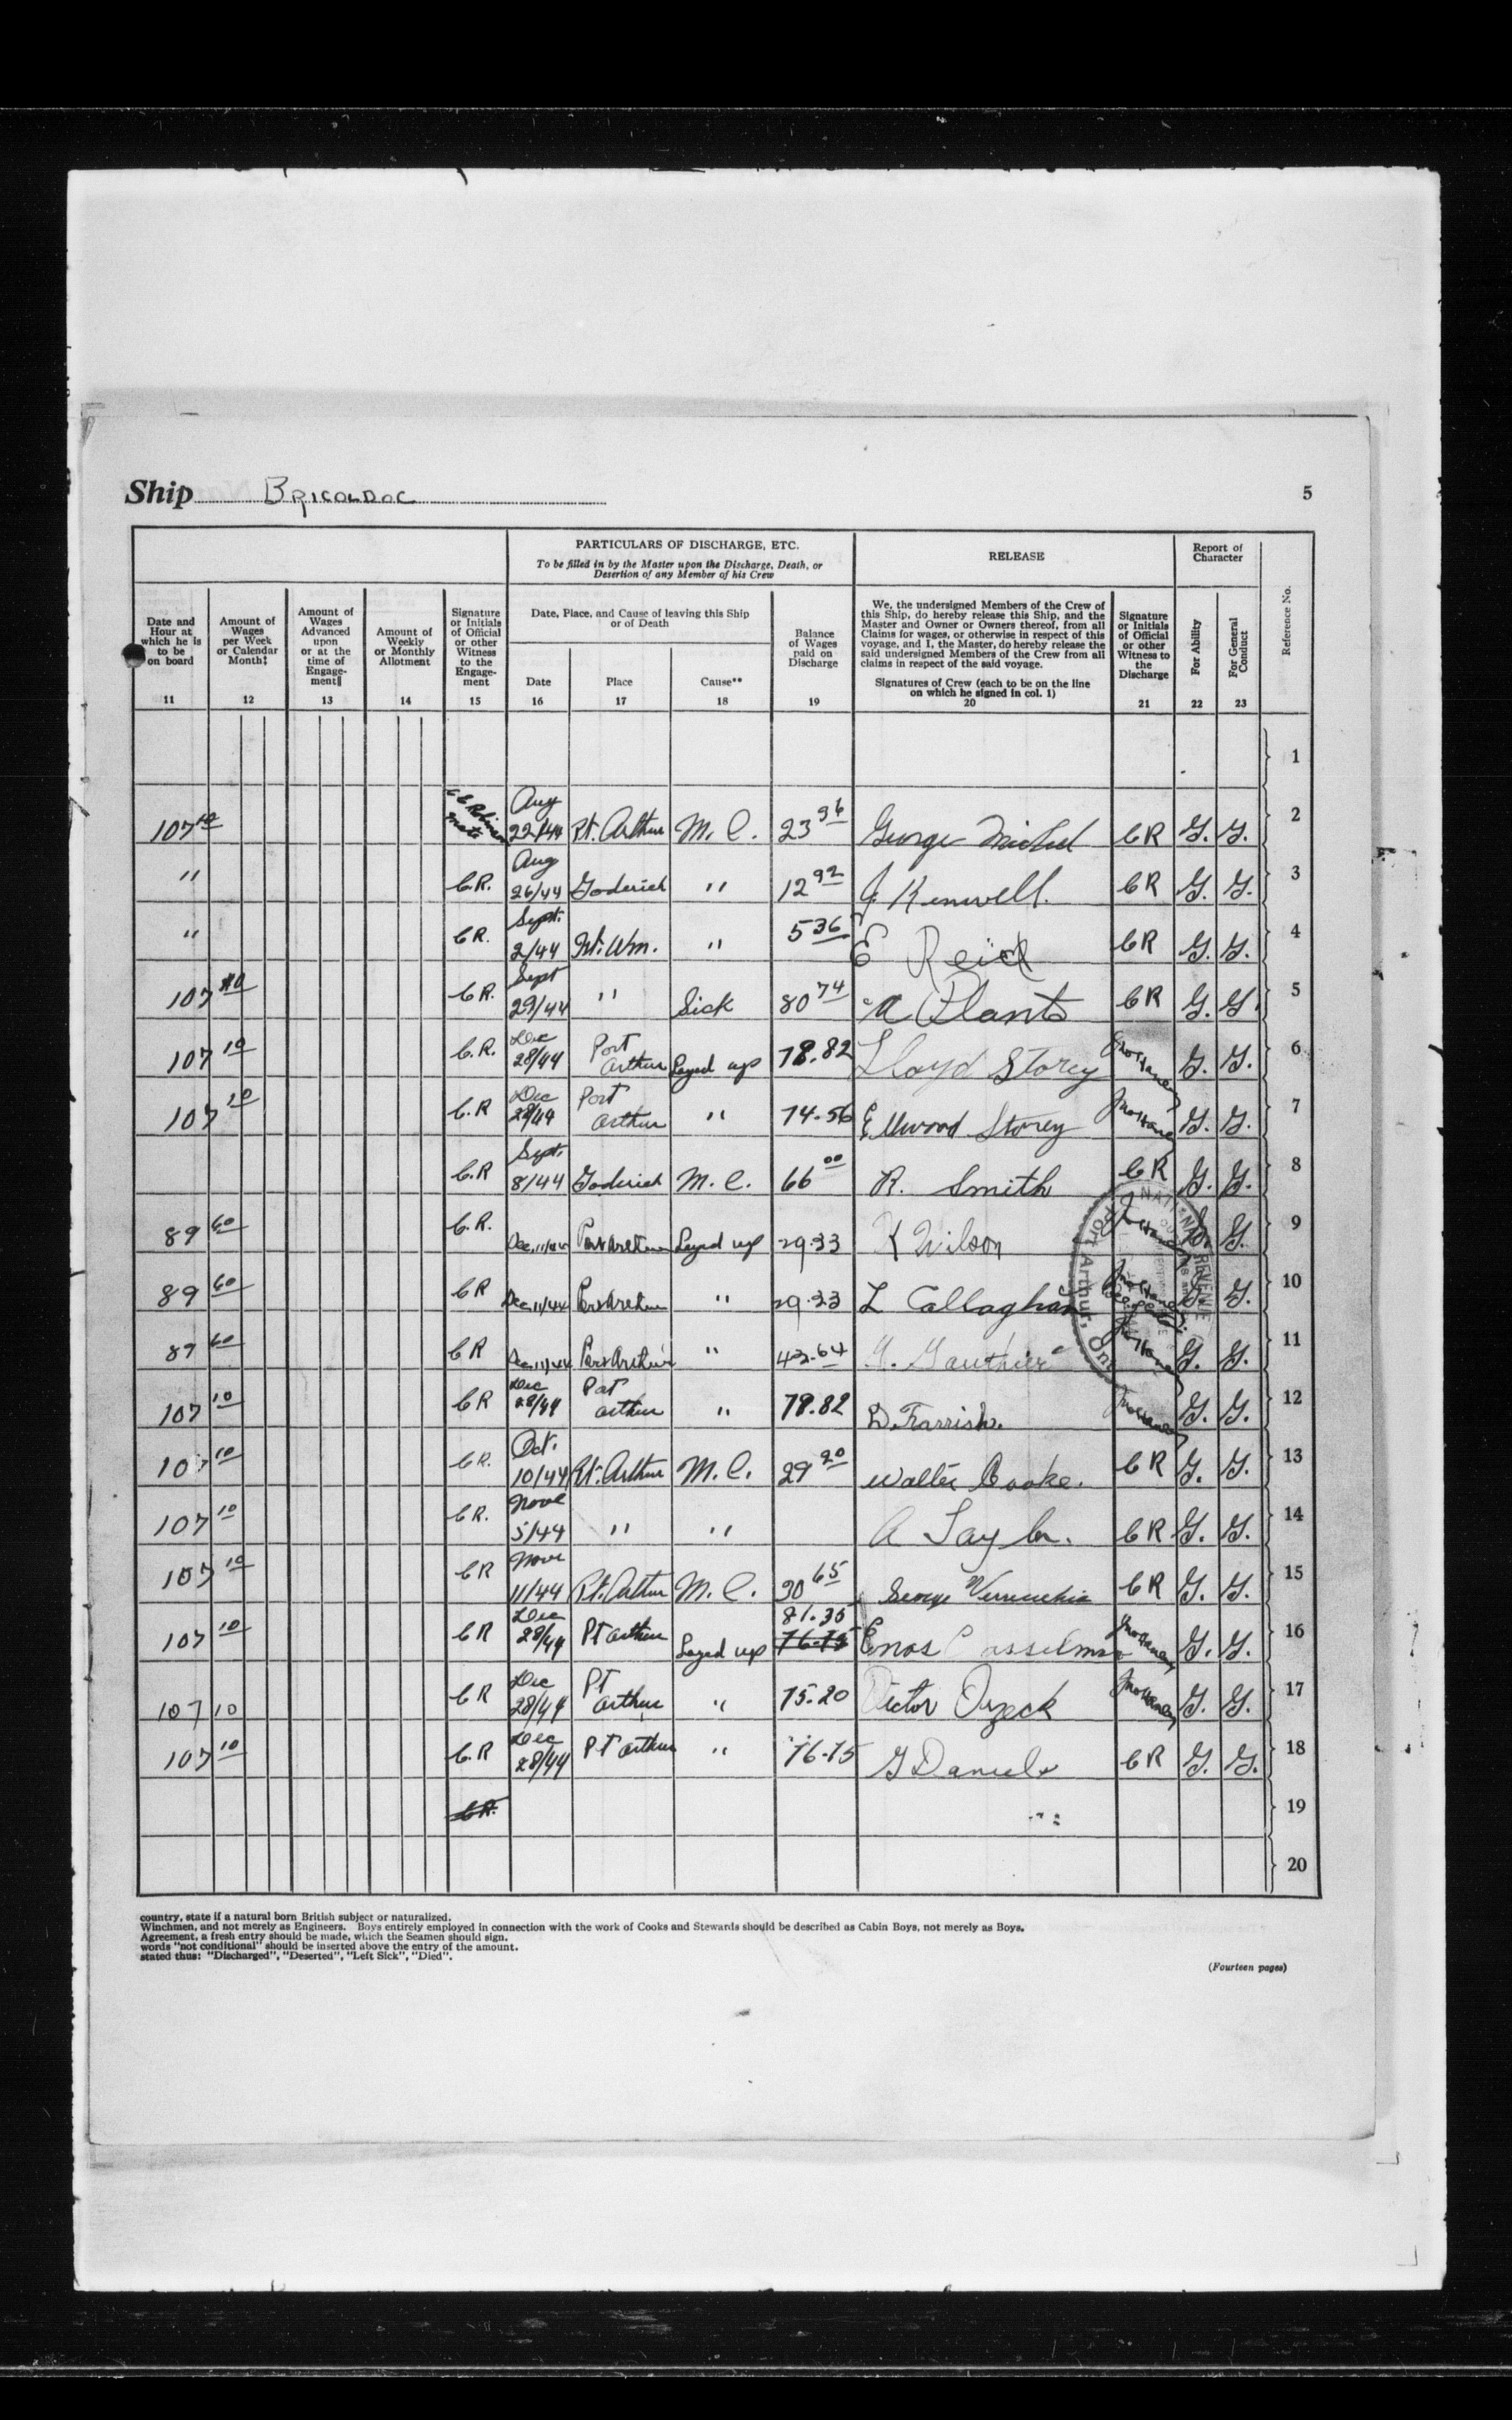 Ship Bricoldoc
5
PARTICULARS OF DISCHARGE, ETC.
To be filled in by the Master upon the Discharge, Death, or
Desertion of any Member of his Crew
RELEASE
Report of
Character
Reference No.
Date and
Hour at
which he is
to be
on board
11
Amount of
Wages
per Week
or Calendar
Month‡
12
Amount of
Wages
Advanced
upon
or at the
time of
Engage-
ment‖
13
Amount of
Weekly
or Monthly
Allotment
14
Signature
or Initials
of Official
or other
Witness
to the
Engage-
ment
15
Date, Place, and Cause of leaving this Ship
or of Death
Date
16
Place
17
Cause**
18
Balance
of Wages
paid on
Discharge
19
We, the undersigned Members of the Crew of
this Ship, do hereby release this Ship, and the
Master and Owner or Owners thereof, from all
Claims for wages, or otherwise in respect of this
voyage, and I, the Master, do hereby release the
said undersigned Members of the Crew from all
claims in respect of the said voyage.
Signatures of Crew (each to be on the line
on which he signed in col. 1)
20
Signature
or Initials
of Official
or other
Witness to
the
Discharge
21
For Ability
22
For General
Conduct
23
1
107 10 Aug 22/44 Pt. Arthur M. C. 23 96 George CR G. G. 2
" C.R. Aug 26/44 Goderich " 12 92 J. CR G. G. 3
" CR. Sept. 2/44 Ft. Wm. " 5 36 E Reid CR G. G. 4
107 10 CR. Sept 29/44 " Sick 80 74 A Plants CR G. G. 5
107 10 C.R. Dec 28/44 Port Arthur Layed up 78.82 Lloyd Storey G. G. 6
107 10 C.R Dec 28/44 Port Arthur " 74.56 Ellwood Storey G. G. 7
C.R Sept. 8/44 Goderich M. C. 66 00 R. Smith CR G. G. 8
89 60 C.R. Dec. 11/44 Port Arthur Layed up 29.33 K Wilson G. 9
89 60 CR Dec. 11/44 Port Arthur " 29.33 L Callaghan G. 10
89 60 CR Dec. 11/44 Port Arthur " 43.64 Gauthier G. G. 11
107 10 CR Dec 28/44 Port Arthur " 78.82 D. Farrish. G. G. 12
107 10 CR. Oct. 10/44 Pt. Arthur M. C. 29 20 Walter Cooke. CR G. G. 13
107 10 CR. Nove 5/44 " " A Taylor. CR G. G. 14
107 10 CR Nove 11/44 Pt. Arthur M. C. 65 George CR G. G. 15
107 10 CR Dec 28/44 Pt Arthur Layed up 81.35 76.75 Enos Casselman G. G. 16
107 10 CR Dec 28/44 Pt Arthur " 75.20 Victor G. G. 17
107 10 C.R Dec 28/44 Pt Arthur " 76.75 G Daniels CR G. G. 18
CR. 19
20
NATIONAL REVENUE
Port Arthur, Ont
country, state if a natural born British subject or naturalized.
Winchmen, and not merely as Engineers. Boys entirely employed in connection with the work of Cooks and Stewards should be described as Cabin Boys, not merely as Boys.
Agreement, a fresh entry should be made, which the Seamen should sign.
words "not conditional" should be inserted above the entry of the amount.
stated thus: "Discharged", "Deserted", "Left Sick", "Died".
(Fourteen pages)